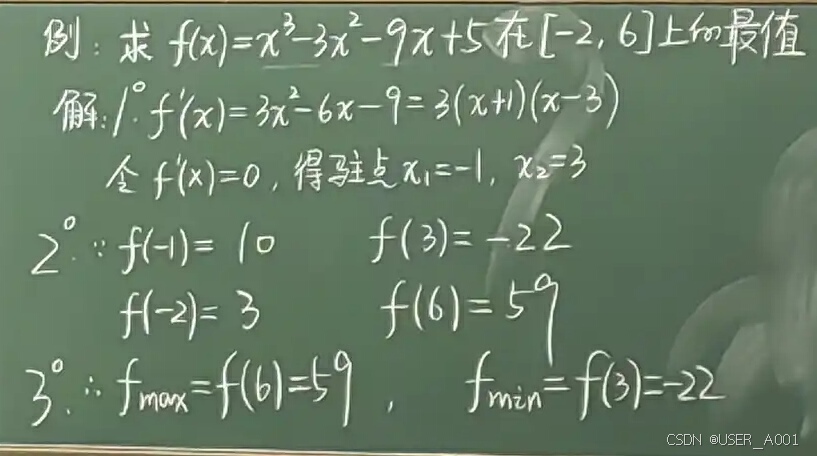 例: 求 f(x)=x³-3x²-9x+5 在 [-2, 6] 上的最值
解: 1°. f'(x)=3x²-6x-9=3(x+1)(x-3)
令 f'(x)=0, 得驻点 x₁=-1, x₂=3
2°. ∵ f(-1)=10 f(3)=-22
f(-2)=3 f(6)=59
3°. ∴ fmax=f(6)=59, fmin=f(3)=-22
CSDN @USER_A001